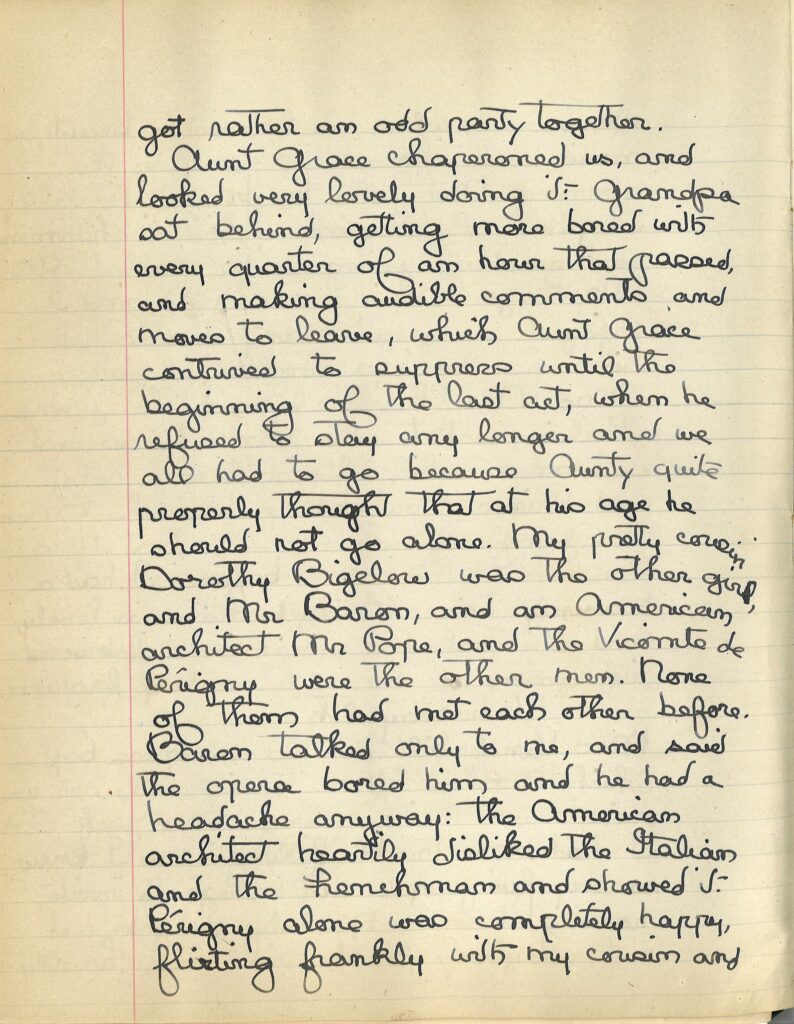 got rather an odd party together.
Aunt Grace chaperoned us, and
looked very lovely doing it. Grandpa
sat behind, getting more bored with
every quarter of an hour that passed,
and making audible comments and
moves to leave, which Aunt Grace
contrived to suppress until the
beginning of the last act, when he
refused to stay any longer and we
all had to go because Aunty quite
properly thought that at his age he
should not go alone. My pretty cousin
Dorothy Bigelow was the other girl,
and Mr Baron, and an American
architect Mr Pope, and the Vicomte de
Périgny were the other men. None
of them had met each other before.
Baron talked only to me, and said
the opera bored him and he had a
headache anyway: the American
architect heartily disliked the Italian
and the Frenchman and showed it.
Périgny alone was completely happy,
flirting frankly with my cousin and